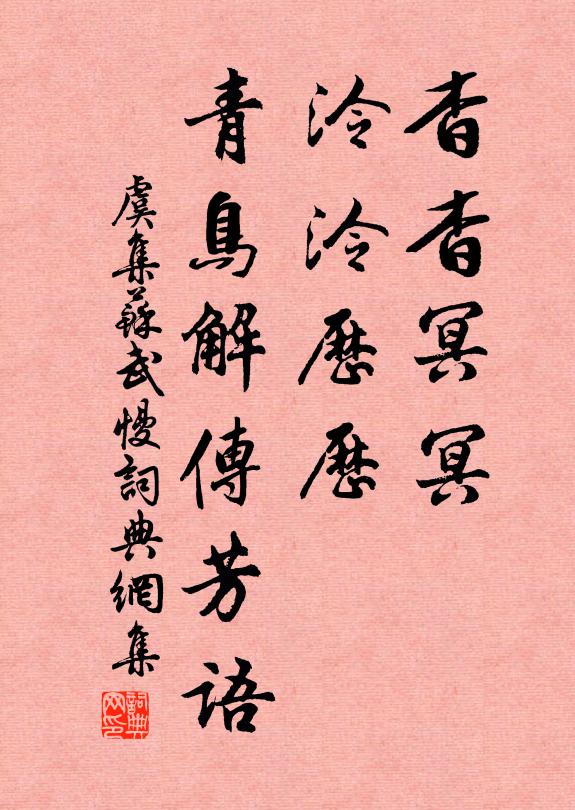 杳杳冥冥
泠泠歷歷
青鳥解傳芳語
虞集蘇武慢詞典網集
詞典网印